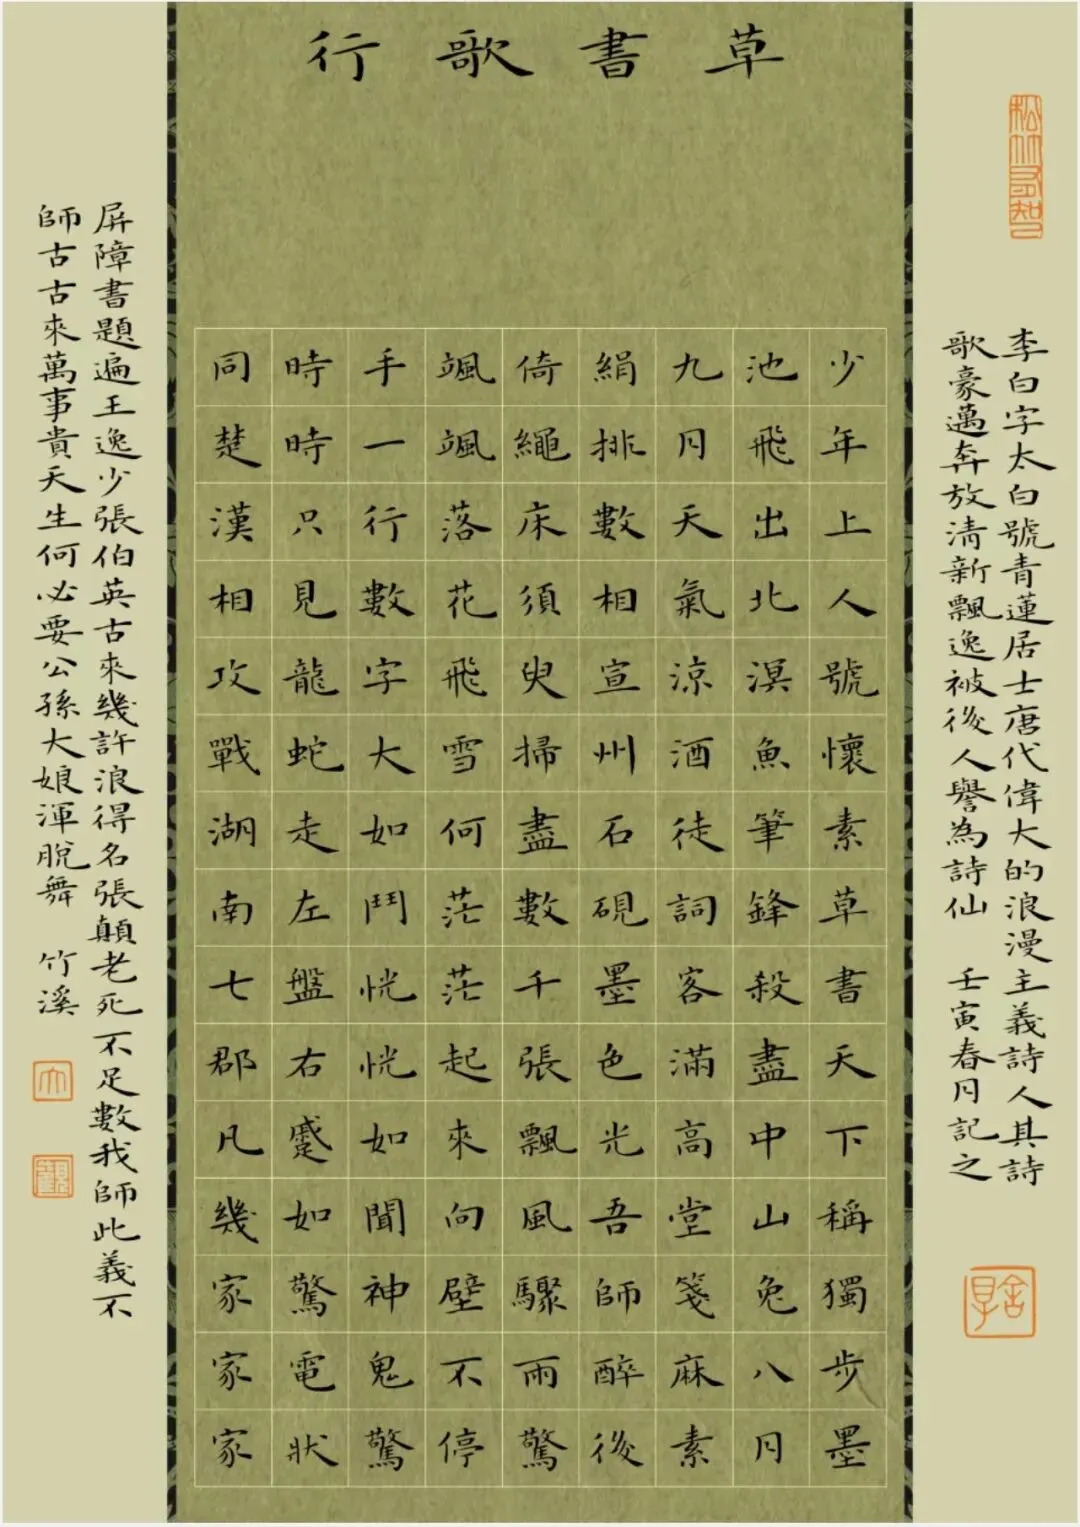 草書歌行
李白字太白號青蓮居士唐代偉大的浪漫主義詩人其詩
歌豪邁奔放清新飄逸被後人譽為詩仙 壬寅春月記之
少年上人號懷素草書天下稱獨步墨
池飛出北溟魚筆鋒殺盡中山兔八月
九月天氣涼酒徒詞客滿高堂箋麻素
絹排數相宣州石硯墨色光吾師醉後
倚繩床須臾掃盡數千張飄風驟雨驚
颯颯落花飛雪何茫茫起來向壁不停
手一行數字大如鬥恍恍如聞神鬼驚
時時只見龍蛇走左盤右蹙如驚電狀
同楚漢相攻戰湖南七郡凡幾家家家
屏障書題遍王逸少張伯英古來幾許浪得名張顛老死不足數我師此義不
師古古來萬事貴天生何必要公孫大娘渾脫舞 竹溪